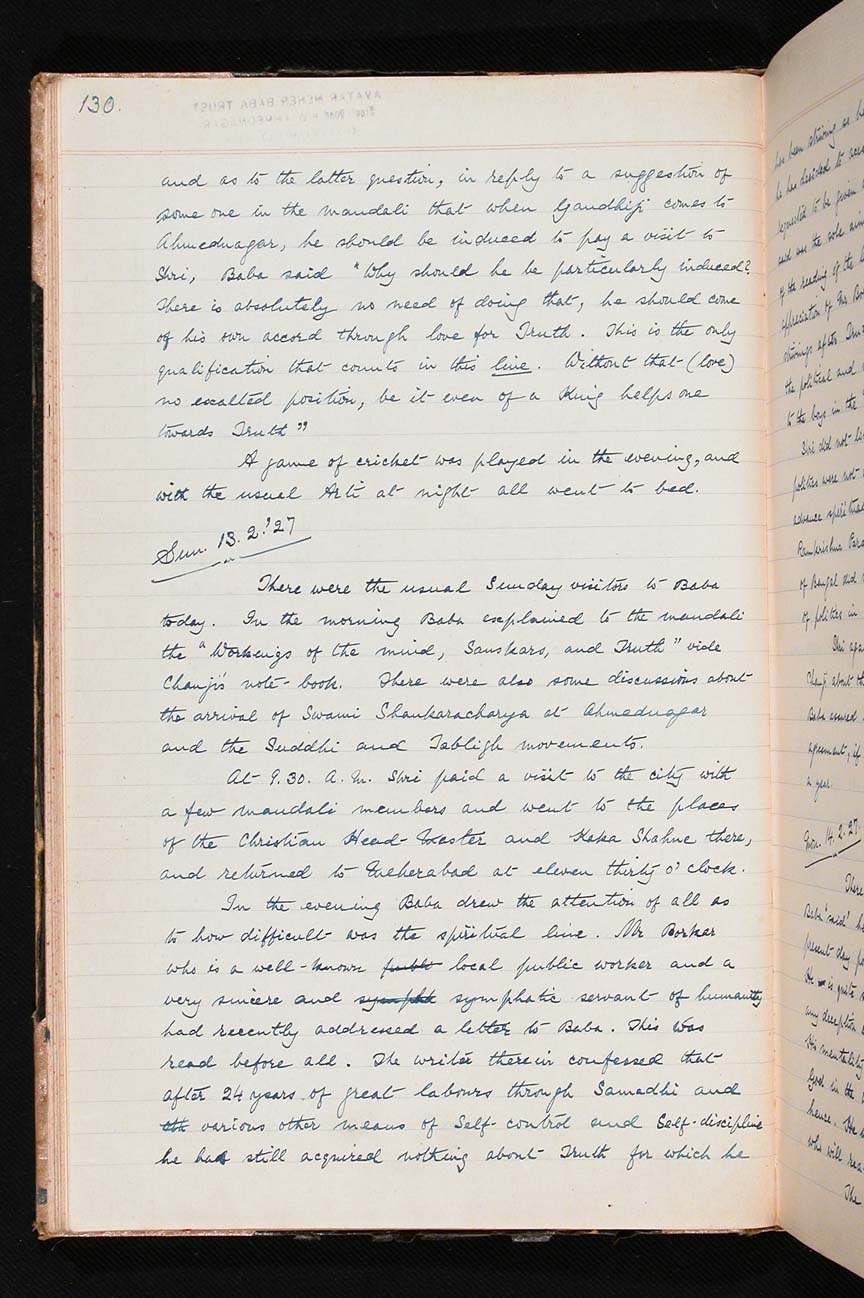 130.
AVATAR MEHER BABA TRUST
and as to the latter question, in reply to a suggestion of
some one in the mandali that when Gandhiji comes to
Ahmednagar, he should be induced to pay a visit to
Shri, Baba said "Why should he be particularly induced?
There is absolutely no need of doing that, he should come
of his own accord through love for Truth. This is the only
qualification that counts in this line. Without that (love)
no excalted position, be it even of a King helps one
towards Truth"
A game of cricket was played in the evening, and
with the usual Arti at night all went to bed.
Sun. 13.2.'27
There were the usual Sunday visitors to Baba
today. In the morning Baba explained to the mandali
the "Workings of the mind, Sanskars, and Truth" vide
Chanji's note-book. There were also some discussions about
the arrival of Swami Shankaracharya at Ahmednagar
and the Suddhi and Tabligh movements.
At 9.30. A.M. Shri paid a visit to the city with
a few mandali members and went to the places
of the Christian Head-Master and Kaka Shahne there,
and returned to Meherabad at eleven thirty o'clock.
In the evening Baba drew the attention of all as
to how difficult was the spiritual line. Mr Borker
who is a well-known publi local public worker and a
very sincere and sympht symphatic servant of humanity
had recently addressed a letter to Baba. This was
read before all. The writer therein confessed that
after 24 years of great labours through Samadhi and
oth various other means of Self-control and Self-discipline
he had still acquired nothing about Truth for which he
has been striving
he has desired to
requested to be given
said was the sole
of the reading of the
appreciation of Mr
strivings after
the political and
to the boys in the
Shri did not
politics were not
advance
Ramkrishna
of Bengal did
of politics in
Shri
Chanji about
Baba assured
agreement, if
a year.
Mon. 14.2.27
There
Baba said
present day
He is quite
any deception
His mentality
God in the
hence. He
who will
The